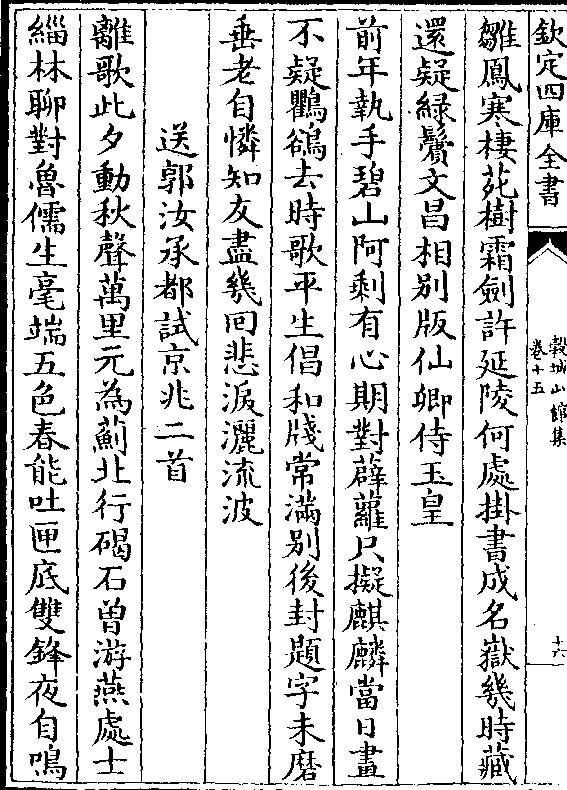 欽定四庫全書
榖城山館集
卷十五
十六
雛鳳寒棲苑樹霜劍許延陵何處掛書成名嶽幾時藏
還疑綠鬢文昌相别版仙卿侍玉皇
前年執手碧山阿剩有心期對薜蘿只擬麒麟當日畫
不疑鸜鵒去時歌平生倡和牋常滿别後封題字未磨
垂老自憐知友盡幾回悲淚灑流波
送郭汝承都試京兆二首
離歌此夕動秋聲萬里元為薊北行碣石曾游燕處士
緇林聊對魯儒生毫端五色春能吐匣底雙鋒夜自鳴